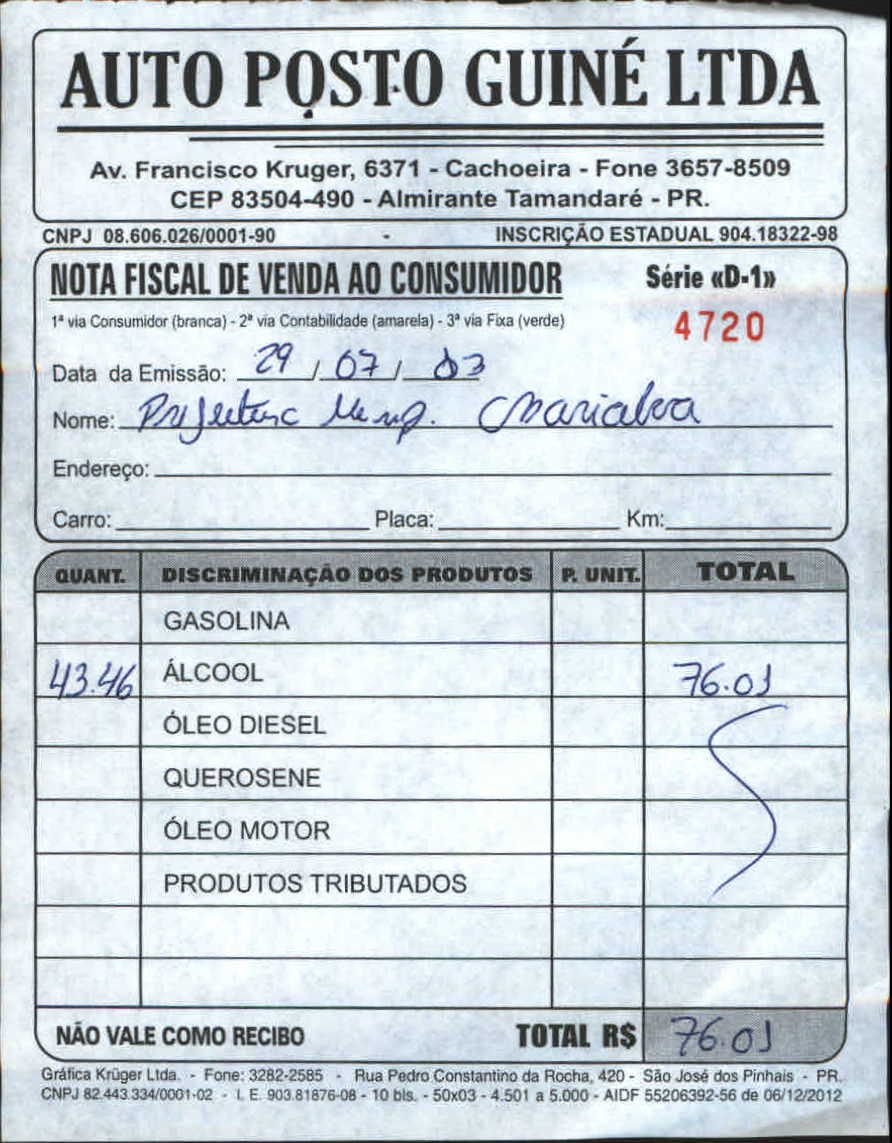 AUTO POSTO GUINÉ LTDA
Av. Francisco Kruger, 6371 - Cachoeira - Fone 3657-8509
CEP 83504-490 - Almirante Tamandaré - PR.
CNPJ 08.606.026/0001-90 - INSCRIÇÃO ESTADUAL 904.18322-98
NOTA FISCAL DE VENDA AO CONSUMIDOR Série «D-1»
1ª via Consumidor (branca) - 2ª via Contabilidade (amarela) - 3ª via Fixa (verde) 4720
Data da Emissão: 29 / 07 / 03
Nome: Marialva
Endereço:
Carro: Placa: Km:
QUANT. DISCRIMINAÇÃO DOS PRODUTOS P. UNIT. TOTAL
GASOLINA
43.46 ÁLCOOL 76.01
ÓLEO DIESEL
QUEROSENE
ÓLEO MOTOR
PRODUTOS TRIBUTADOS
NÃO VALE COMO RECIBO TOTAL R$ 76.01
Gráfica Krüger Ltda. - Fone: 3282-2585 - Rua Pedro Constantino da Rocha, 420 - São José dos Pinhais - PR.
CNPJ 82.443.334/0001-02 - I. E. 903.81876-08 - 10 bls. - 50x03 - 4.501 a 5.000 - AIDF 55206392-56 de 06/12/2012